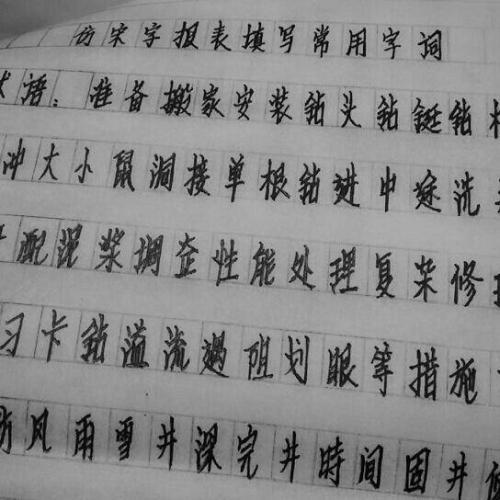 仿宋字报表填写常用字词
语：准备搬家安装钻头钻铤钻
冲大小鼠洞接单根钻进中途洗
配泥浆调整性能处理复杂修
习卡钻溢流遇阻划眼等措施
防风雨雪井深完井時間固井